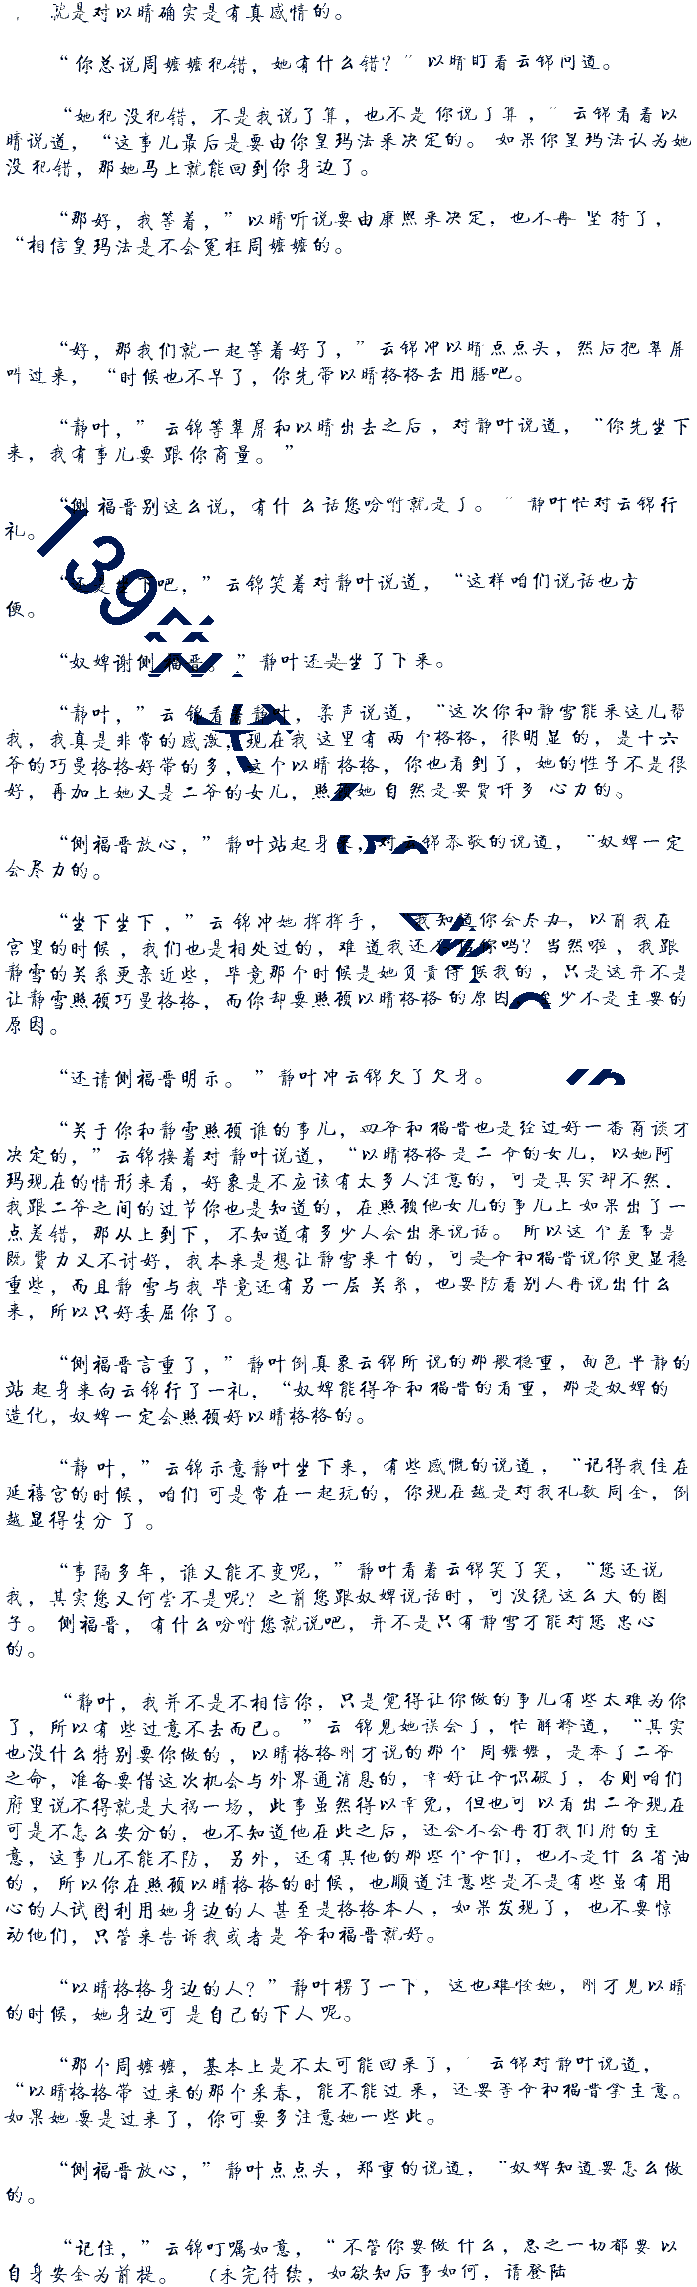 ，　就是对以晴确实是有真感情的。
“你总说周嬷嬷犯错，她有什么错？”以晴盯着云锦问道。
“她犯没犯错，不是我说了算，也不是你说了算，”云锦看着以
晴说道，“这事儿最后是要由你皇玛法来决定的。如果你皇玛法认为她
没犯错，那她马上就能回到你身边了。
“那好，我等着，”以晴听说要由康熙来决定，也不再坚持了，
“相信皇玛法是不会冤枉周嬷嬷的。
“好，那我们就一起等着好了，”云锦冲以晴点点头，然后把翠屏
叫过来，“时候也不早了，你先带以晴格格去用膳吧。
“静叶，”云锦等翠屏和以晴出去之后，对静叶说道，“你先坐下
来，我有事儿要跟你商量。”
“侧福晋别这么说，有什么话您吩咐就是了。”静叶忙对云锦行
礼。
“还是坐下吧，”云锦笑着对静叶说道，“这样咱们说话也方
便。
“奴婢谢侧福晋。”静叶还是坐了下来。
“静叶，”云锦看着静叶，柔声说道，“这次你和静雪能来这儿帮
我，我真是非常的感激，现在我这里有两个格格，很明显的，是十六
爷的巧曼格格好带的多，这个以晴格格，你也看到了，她的性子不是很
好，再加上她又是二爷的女儿，照顾她自然是要费许多心力的。
“侧福晋放心，”静叶站起身来，对云锦恭敬的说道，“奴婢一定
会尽力的。
“坐下坐下，”云锦冲她挥挥手，“我知道你会尽力，以前我在
宫里的时候，我们也是相处过的，难道我还不信你吗？当然啦，我跟
静雪的关系更亲近些，毕竟那个时候是她负责侍候我的，只是这并不是
让静雪照顾巧曼格格，而你却要照顾以晴格格的原因，至少不是主要的
原因。
“还请侧福晋明示。”静叶冲云锦欠了欠身。
“关于你和静雪照顾谁的事儿，四爷和福晋也是经过好一番商谈才
决定的，”云锦接着对静叶说道，“以晴格格是二爷的女儿，以她阿
玛现在的情形来看，好象是不应该有太多人注意的，可是其实却不然．
我跟二爷之间的过节你也是知道的，在照顾他女儿的事儿上如果出了一
点差错，那从上到下，不知道有多少人会出来说话。所以这个差事是
既费力又不讨好，我本来是想让静雪来干的，可是爷和福晋说你更显稳
重些，而且静雪与我毕竟还有另一层关系，也要防着别人再说出什么
来，所以只好委屈你了。
“侧福晋言重了，”静叶倒真象云锦所说的那般稳重，面色平静的
站起身来向云锦行了一礼，“奴婢能得爷和福晋的看重，那是奴婢的
造化，奴婢一定会照顾好以晴格格的。
“静叶，”云锦示意静叶坐下来，有些感慨的说道，“记得我住在
延禧宫的时候，咱们可是常在一起玩的，你现在越是对我礼数周全，倒
越显得生分了。
“事隔多年，谁又能不变呢，”静叶看着云锦笑了笑，“您还说
我，其实您又何尝不是呢？之前您跟奴婢说话时，可没绕这么大的圈
子。侧福晋，有什么吩咐您就说吧，并不是只有静雪才能对您忠心
的。
“静叶，我并不是不相信你，只是觉得让你做的事儿有些太难为你
了，所以有些过意不去而已。”云锦见她误会了，忙解释道，“其实
也没什么特别要你做的，以晴格格刚才说的那个周嬷嬷，是奉了二爷
之命，准备要借这次机会与外界通消息的，幸好让爷识破了，否则咱们
府里说不得就是大祸一场，此事虽然得以幸免，但也可以看出二爷现在
可是不怎么安分的，也不知道他在此之后，还会不会再打我们府的主
意，这事儿不能不防，另外，还有其他的那些个爷们，也不是什么省油
的，所以你在照顾以晴格格的时候，也顺道注意些是不是有些虽有用
心的人试图利用她身边的人甚至是格格本人，如果发现了，也不要惊
动他们，只管来告诉我或者是爷和福晋就好。
“以晴格格身边的人？”静叶楞了一下，这也难怪她，刚才见以晴
的时候，她身边可是自己的下人呢。
“那个周嬷嬷，基本上是不太可能回来了，”云锦对静叶说道，
“以晴格格带过来的那个采春，能不能过来，还要等爷和福晋拿主意。
如果她要是过来了，你可要多注意她一些此。
“侧福晋放心，”静叶点点头，郑重的说道，“奴婢知道要怎么做
的。
“记住，”云锦叮嘱如意，“不管你要做什么，总之一切都要以
自身安全为前提。　（未完待续，如欲知后事如何，请登陆